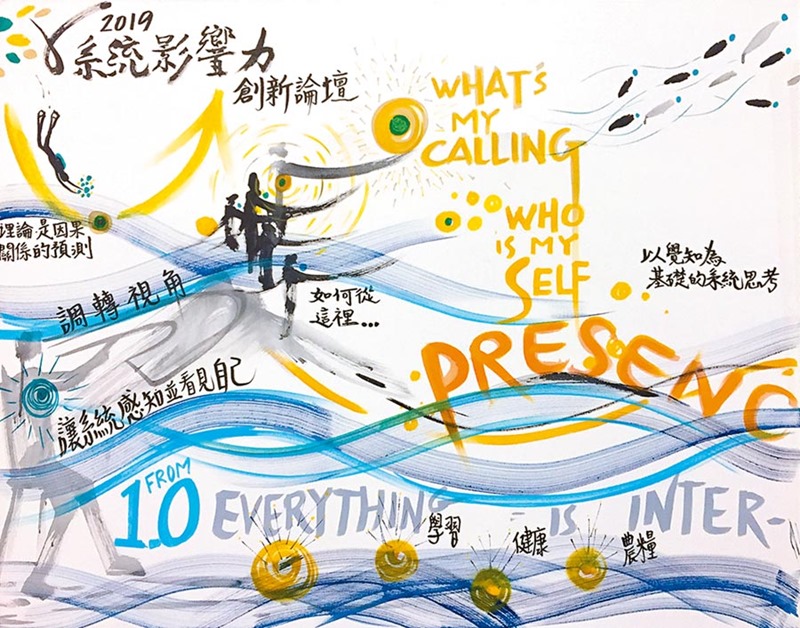 2019
系統影響力
創新論壇
WHAT'S
MY
CALLING
WHO
IS MY
SELF
理論是因果
關係的預測
以覺知為
基礎的系統思考
調轉視角
如何從
這裡...
PRESENC
讓系統感知並看見自己
FROM
1.0
EVERYTHING - IS INTER-
學習
健康
農糧